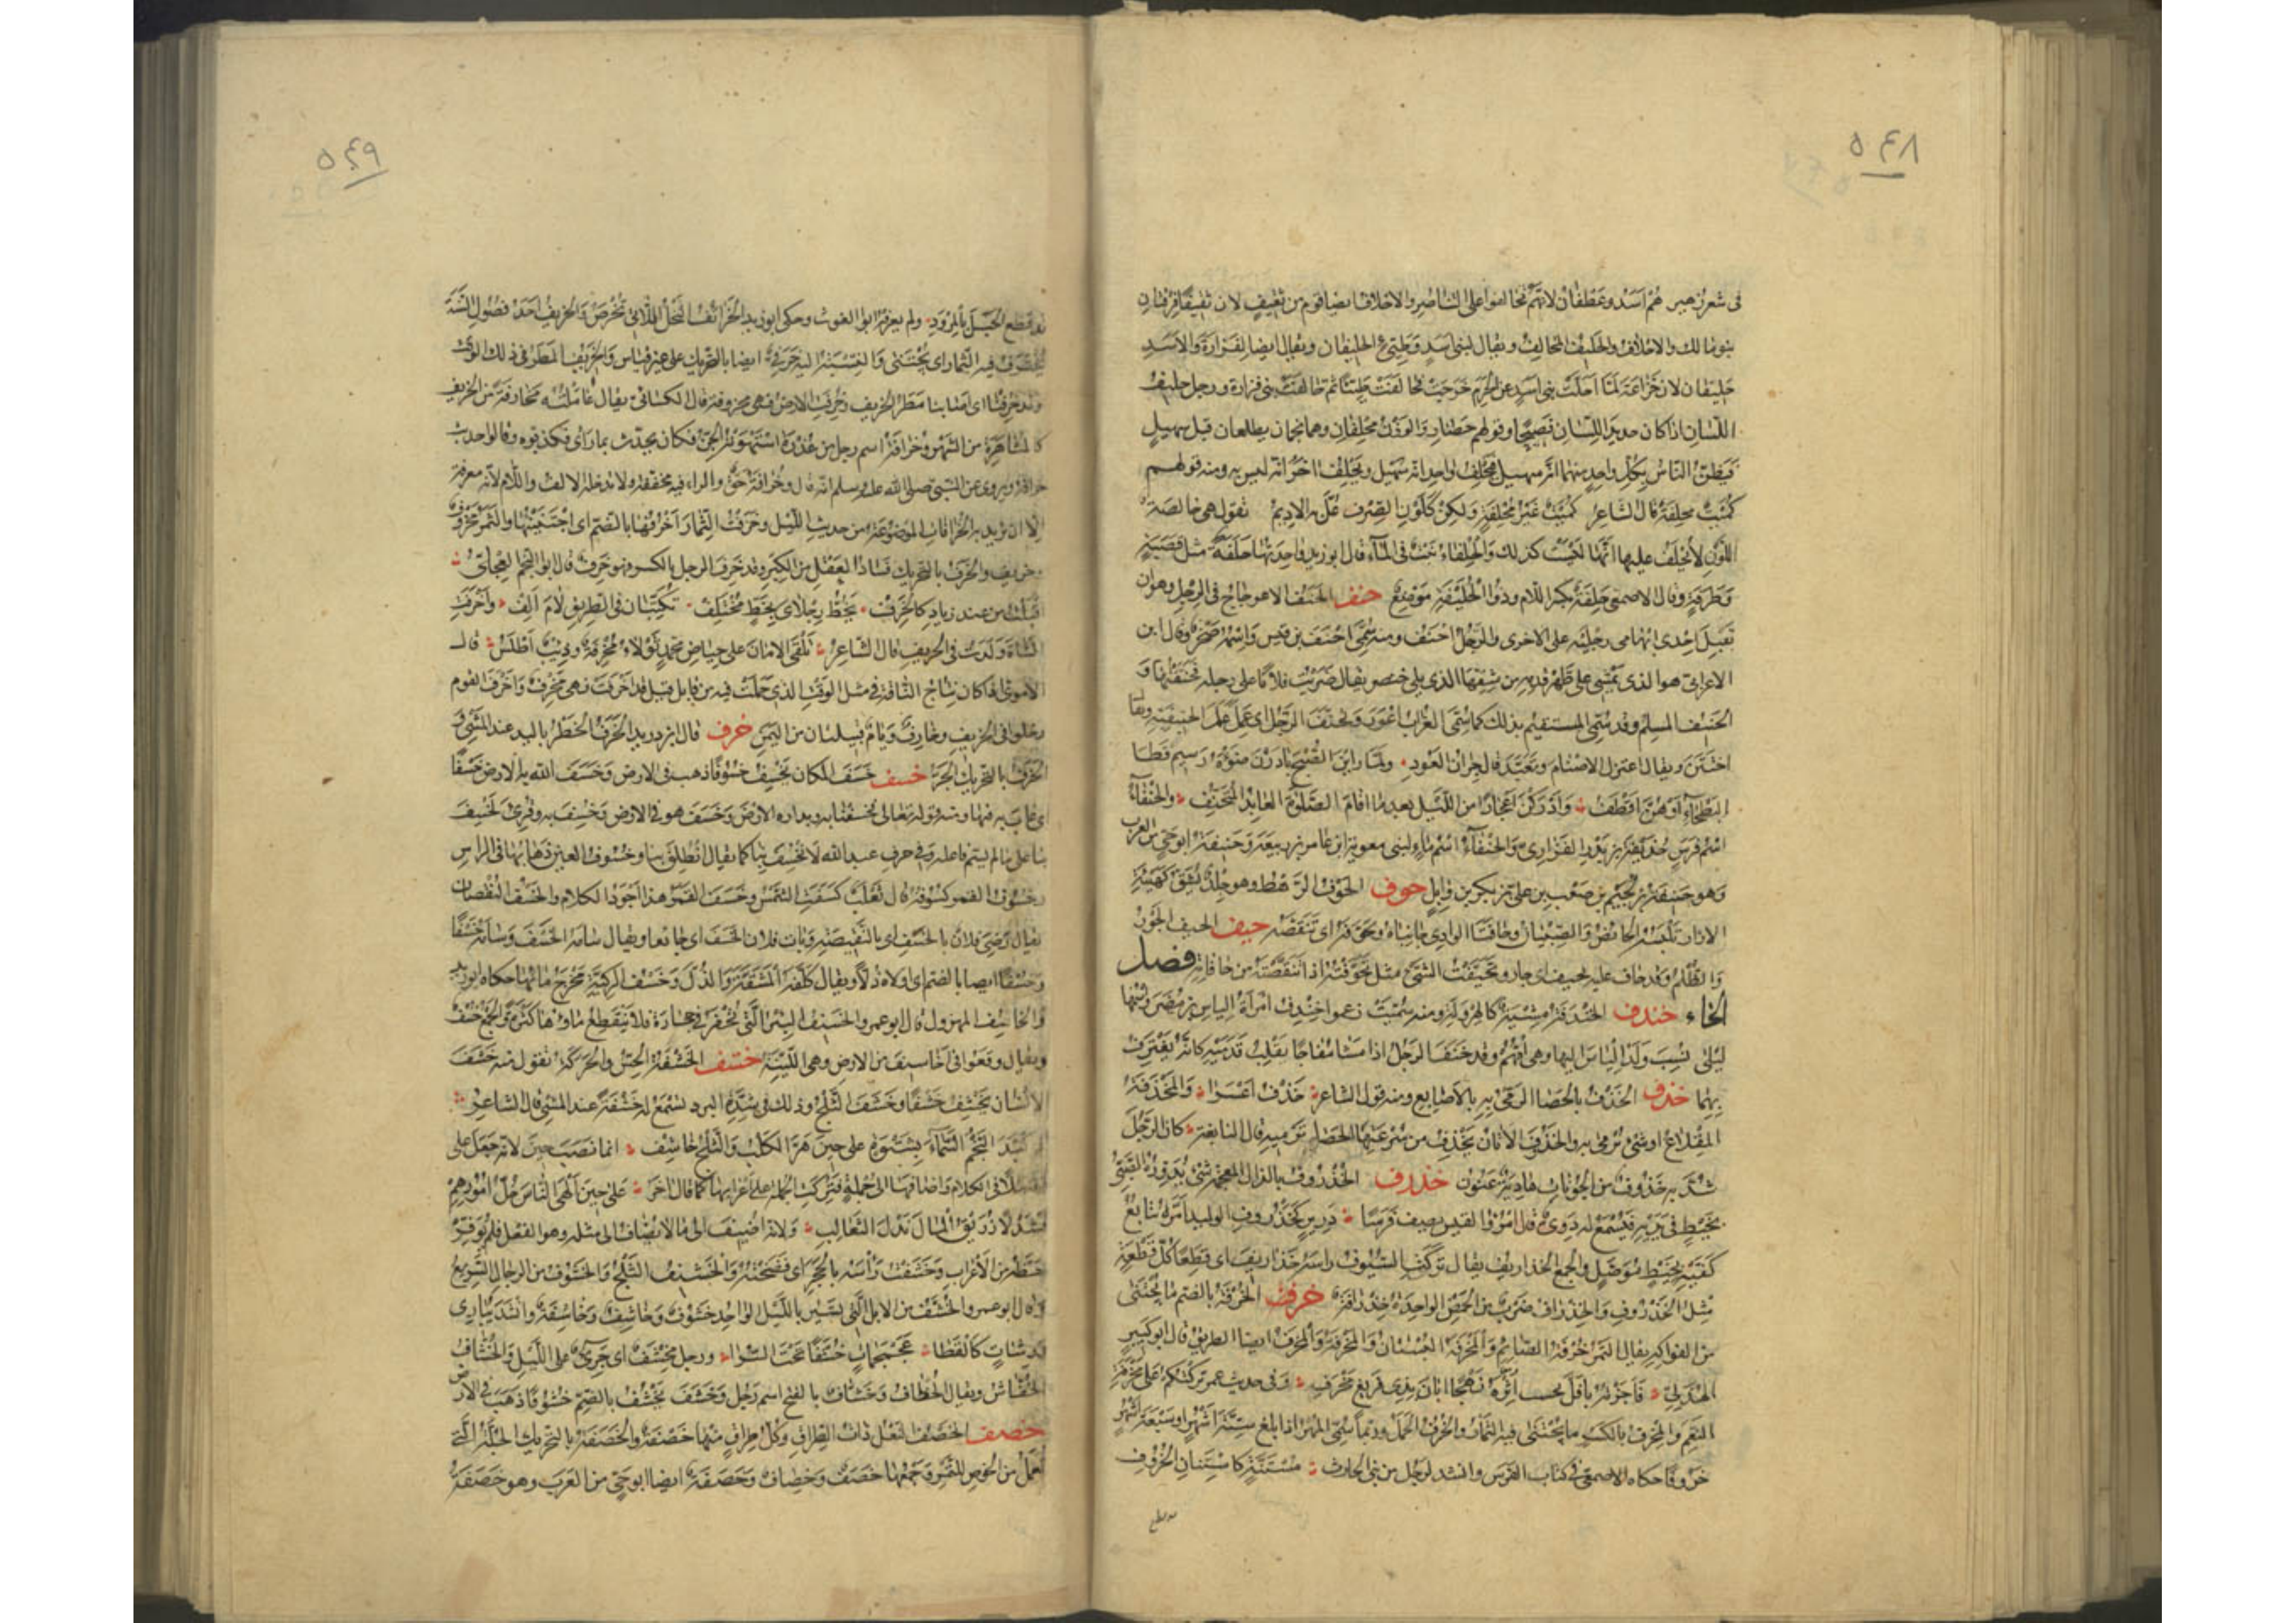 ٥٤٨
فى شعر زهير هم اسد وغطفان لانهم تحالفوا على التناصر والاحلاف ايضا قوم من ثقيف لان ثقيفا فرقتان
بنو مالك والاحلاف والحليف المحالف ويقال لبنى اسد وطيئ الحليفان ويقال ايضا لفزارة والاسد
حليفان لان خزاعة لما اجلت بنى اسد عن الحرم خرجت فحالفت طيئا ثم حالفت بنى فزارة ورجل حليف
اللسان اذا كان حديد اللسان فصيحا وقولهم حضار والوزن محلفان وهما نجمان يطلعان قبل سهيل
فيظن الناس بكل واحد منهما انه سهيل فيحلف واحد انه سهيل ويحلف اخر انه ليس به ومنه قولهم
كميت محلفة قال الشاعر كميت غير محلفة ولكن كلون الصرف عل به الاديم تقول هى خالصة
اللون لا يحلف عليها انها ليست كذلك والحلفاء نبت فى الماء قال ابو زيد واحدتها حلفة مثل قصبة
وطرفة وقال الاصمعى حلفة بكسر اللام وذو الحليفة موضع حنف الحنف الاعوجاج فى الرجل وهو ان
تقبل احدى ابهامى رجليه على الاخرى والرجل احنف ومنه سمى احنف بن قيس واسمه صخر وقال ابن
الاعرابى هو الذى يمشى على ظهر قدمه من شقها الذى يلى خنصر يقال ضربت فلانا على رجله فحنفتها و
الحنيف المسلم وقد سمى المستقيم بذلك كما سمى الغراب اعور وتحنف الرجل اى عمل عمل الحنيفية ويقال
اختتن ويقال اعتزل الاصنام وتعبد قال جران العود ولما راين الصبح بادرن ضوءه رسيم قطا
البطحاء او هن اقطف وادركن اعجازا من الليل بعد ما اقام الصلوة العابد المتحنف والحنفاء
اسم فرس حذيفة بن بدر الفزارى والحنفاء اسم ماء لبنى معوية ابن عامر بن ربيعة وحنيفة ابو حى من العرب
وهو حنيفة بن لجيم بن صعب بن على بن بكر بن وايل حوف الحوف الرهط وهو جلد يشقق كهيئة
الازار تلبسه الحائض والصبيان وحافتا الوادى جانباه وتحوفه اى تنقصه حيف الحيف الجور
والظلم وقد حاف عليه يحيف اى جار وتحيفت الشئ مثل تحوفته اذا تنقصته من حافاته فصل
الخاء خندف الخندفة مشية كالهرولة ومنه سميت زعموا خندف امرأة الياس بن مضر واسمها
ليلى نسب ولد الياس اليها وهى امهم وقد خنف الرجل اذا مشا مفاجا بقلب قدميه كانه يغترف
بهما خذف الخذف بالحصا الرمى به بالاصابع ومنه قول الشاعر خذف اعسرا والمخذفة
المقلاع او شئ يرمى به والخذوف الاتان تخذف من سرعتها الحصا اى ترميه قال النابغة كان الرجل
شد به خذوف من الجونات هادية عنون خذرف الخذروف بالذال المعجمة شئ يدوره الصبى
بخيط فى يديه فيسمع له دوى قال امرؤ القيس يصف فرسا درير كخذروف الوليد امره تتابع
كفيه بخيط موصل والجمع الخذاريف يقال تركت السيوف راسه خذاريف اى قطعا كل قطعة
مثل الخذروف والخذراف ضرب من الحمض الواحدة خذرافة خرف الخرفة بالضم ما يجتنى
من الفواكه يقال التمر خرفة الصائم والمخرفة البستان والمخرفة والمخرف ايضا الطريق قال ابو كبير
الهذلى فاجزته بافل تحسب اثره نهجا ابان بذى فريغ مخرف وفى حديث عمر تركتكم على مخرفة
النعم والمخرف بالكسر ما يجتنى فيه الثمار والخروف الحمل وربما سمى المهر اذا بلغ ستة اشهر او سبعة اشهر
خروفا حكاه الاصمعى فى كتاب الفرس وانشد لرجل من بنى الحارث مستنة كاستنان الخروف
٥٤٩
قد قطع الحبل بالمرود ولم يعرفه ابو الغوث وحكى ابو زيد الخرائف النخل اللاتى تخرص والخريف احد فصول السنة
تخترف فيه الثمار اى تجتنى والنسبة اليه خرفى ايضا بالتحريك على غير قياس والخريف المطر فى ذلك الوقت
وقد خرفنا اى اصابنا مطر الخريف وخرفت الارض فهى مخروفة قال الكسائى يقال عاملته مخارفة من الخريف
كالمشاهرة من الشهر وخرافة اسم رجل من عذرة استهوته الجن فكان يحدث بما راى فكذبوه وقالوا حديث
خرافة ويروى عن النبى صلى الله عليه وسلم انه قال وخرافة حق والراء فيه مخففة ولا تدخله الالف واللام لانه معرفة
الا ان تريد به الخرافات الموضوعة من حديث الليل وخرفت الثمار اخرفها بالضم اى اجتنيتها والثمر مخروف
وخريف والخرف بالتحريك فساد العقل من الكبر وقد خرف الرجل بالكسر فهو خرف قال ابو النجم العجلى
اقبلت من عند زياد كالخرف تخط رجلاى بخط مختلف تكتبان فى الطريق لام الف واخرفت
الشاة ولدت فى الخريف قال الشاعر تلقى الامان على حياض محمد ثولاء مخرفة وذئب اطلس قال
الاموى اذا كان نتاج الناقة فى مثل الوقت الذى حملت فيه من قابل قيل قد اخرفت فهى مخرف واخرف القوم
دخلوا فى الخريف وخارف ويام قبيلتان من اليمن خزف قال ابن دريد الخزف الخطر باليد عند المشى و
الخزف بالتحريك الجر خسف خسف المكان يخسف خسوفا ذهب فى الارض وخسف الله به الارض خسفا
اى غاب به فيها ومنه قوله تعالى فخسفنا به وبداره الارض وخسف هو فى الارض وخسف به وقرئ لخسف
بنا على ما لم يسم فاعله وفى حرف عبد الله لانخسف بنا كما يقال انطلق بنا وخسوف العين ذهابها فى الراس
وخسوف القمر كسوفه قال ثعلب كسفت الشمس وخسف القمر هذا اجود الكلام والخسف النقصان
يقال رضى فلان بالخسف اى بالنقيصة وبات فلان الخسف اى جائعا ويقال سامه الخسف وسامه خسفا
وخسفا ايضا بالضم اى اولاه ذلا ويقال كلفه المشقة والذل وخسف الركية مخرج مائها حكاه ابو زيد
والخاسف المهزول قال ابو عمرو والخسيف البئر التى تحفر فى حجارة فلا ينقطع ماؤها كثرة والجمع خسف
ويقال وقعوا فى اخاسيف من الارض وهى اللينة خشف الخشفة الحس والحركة تقول منه خشف
الانسان يخشف خشفا وخشف الثلج وذلك فى شدة البرد تسمع له خشفة عند المشى قال الشاعر
اذا كبد النجم السماء بشتوة على حين هر الكلب والثلج خاشف انما نصب حين لانه جعل على
فضلا فى الكلام واضافها الى جملة فتركت الجملة على اعرابها كما قال اخر على حين الهى الناس جل امورهم
فندلا زريق المال ندل الثعالب ولانه اضيف الى ما لا يضاف الى مثله وهو الفعل فلم يوفر
حظه من الاعراب وخشفت راسه بالحجر اى فضخته والخشيف الثلج والخشوف من الرجال السريع
قال ابو عمرو الخشف من الابل التى تسير بالليل الواحد خشوف وخاشف وخاشفة وانشد يبارى
بات كالقطا عجمجمات خشفا تحت السرا ورجل مخشف اى جرئ على الليل والخشاف
الخفاش ويقال الخطاف وخشاف بالفتح اسم رجل وخشف يخشف بالضم خشوفا ذهب فى الارض
خصف الخصف النعل ذات الطراق وكل طراق منها خصفة والخصفة بالتحريك الجلة التى
تعمل من الخوص للتمر وجمعها خصف وخصاف وخصفة ايضا ابو حى من العرب وهو خصفة